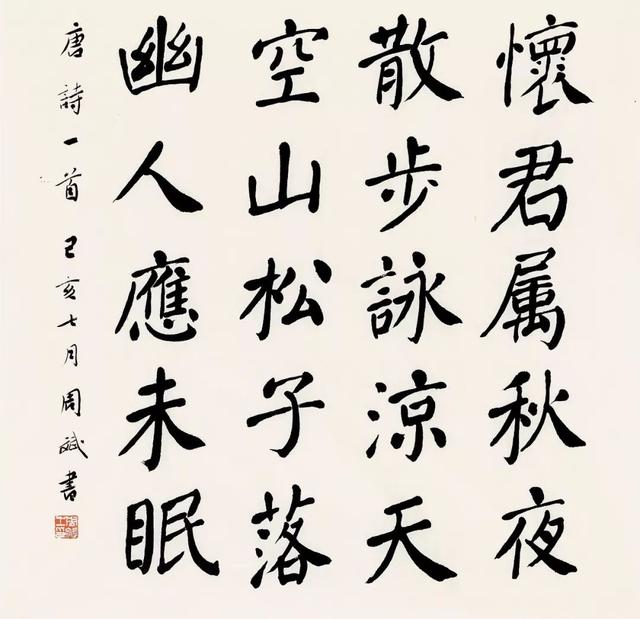 懷君属秋夜
散步詠涼天
空山松子落
幽人應未眠
唐詩一首 己亥七月周斌書